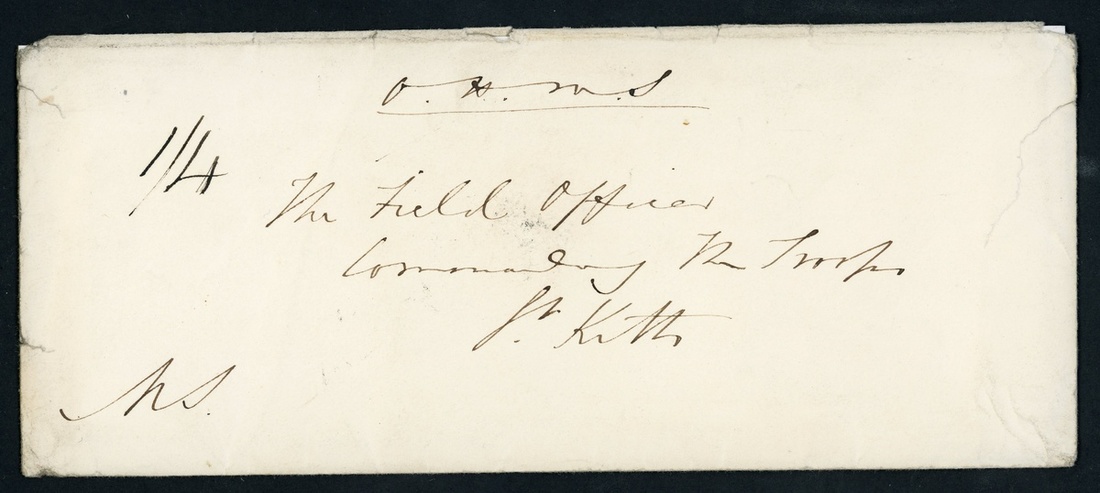 O.H.M.S
1/4
The Field Officer
Commanding The Troops
St. Kitts